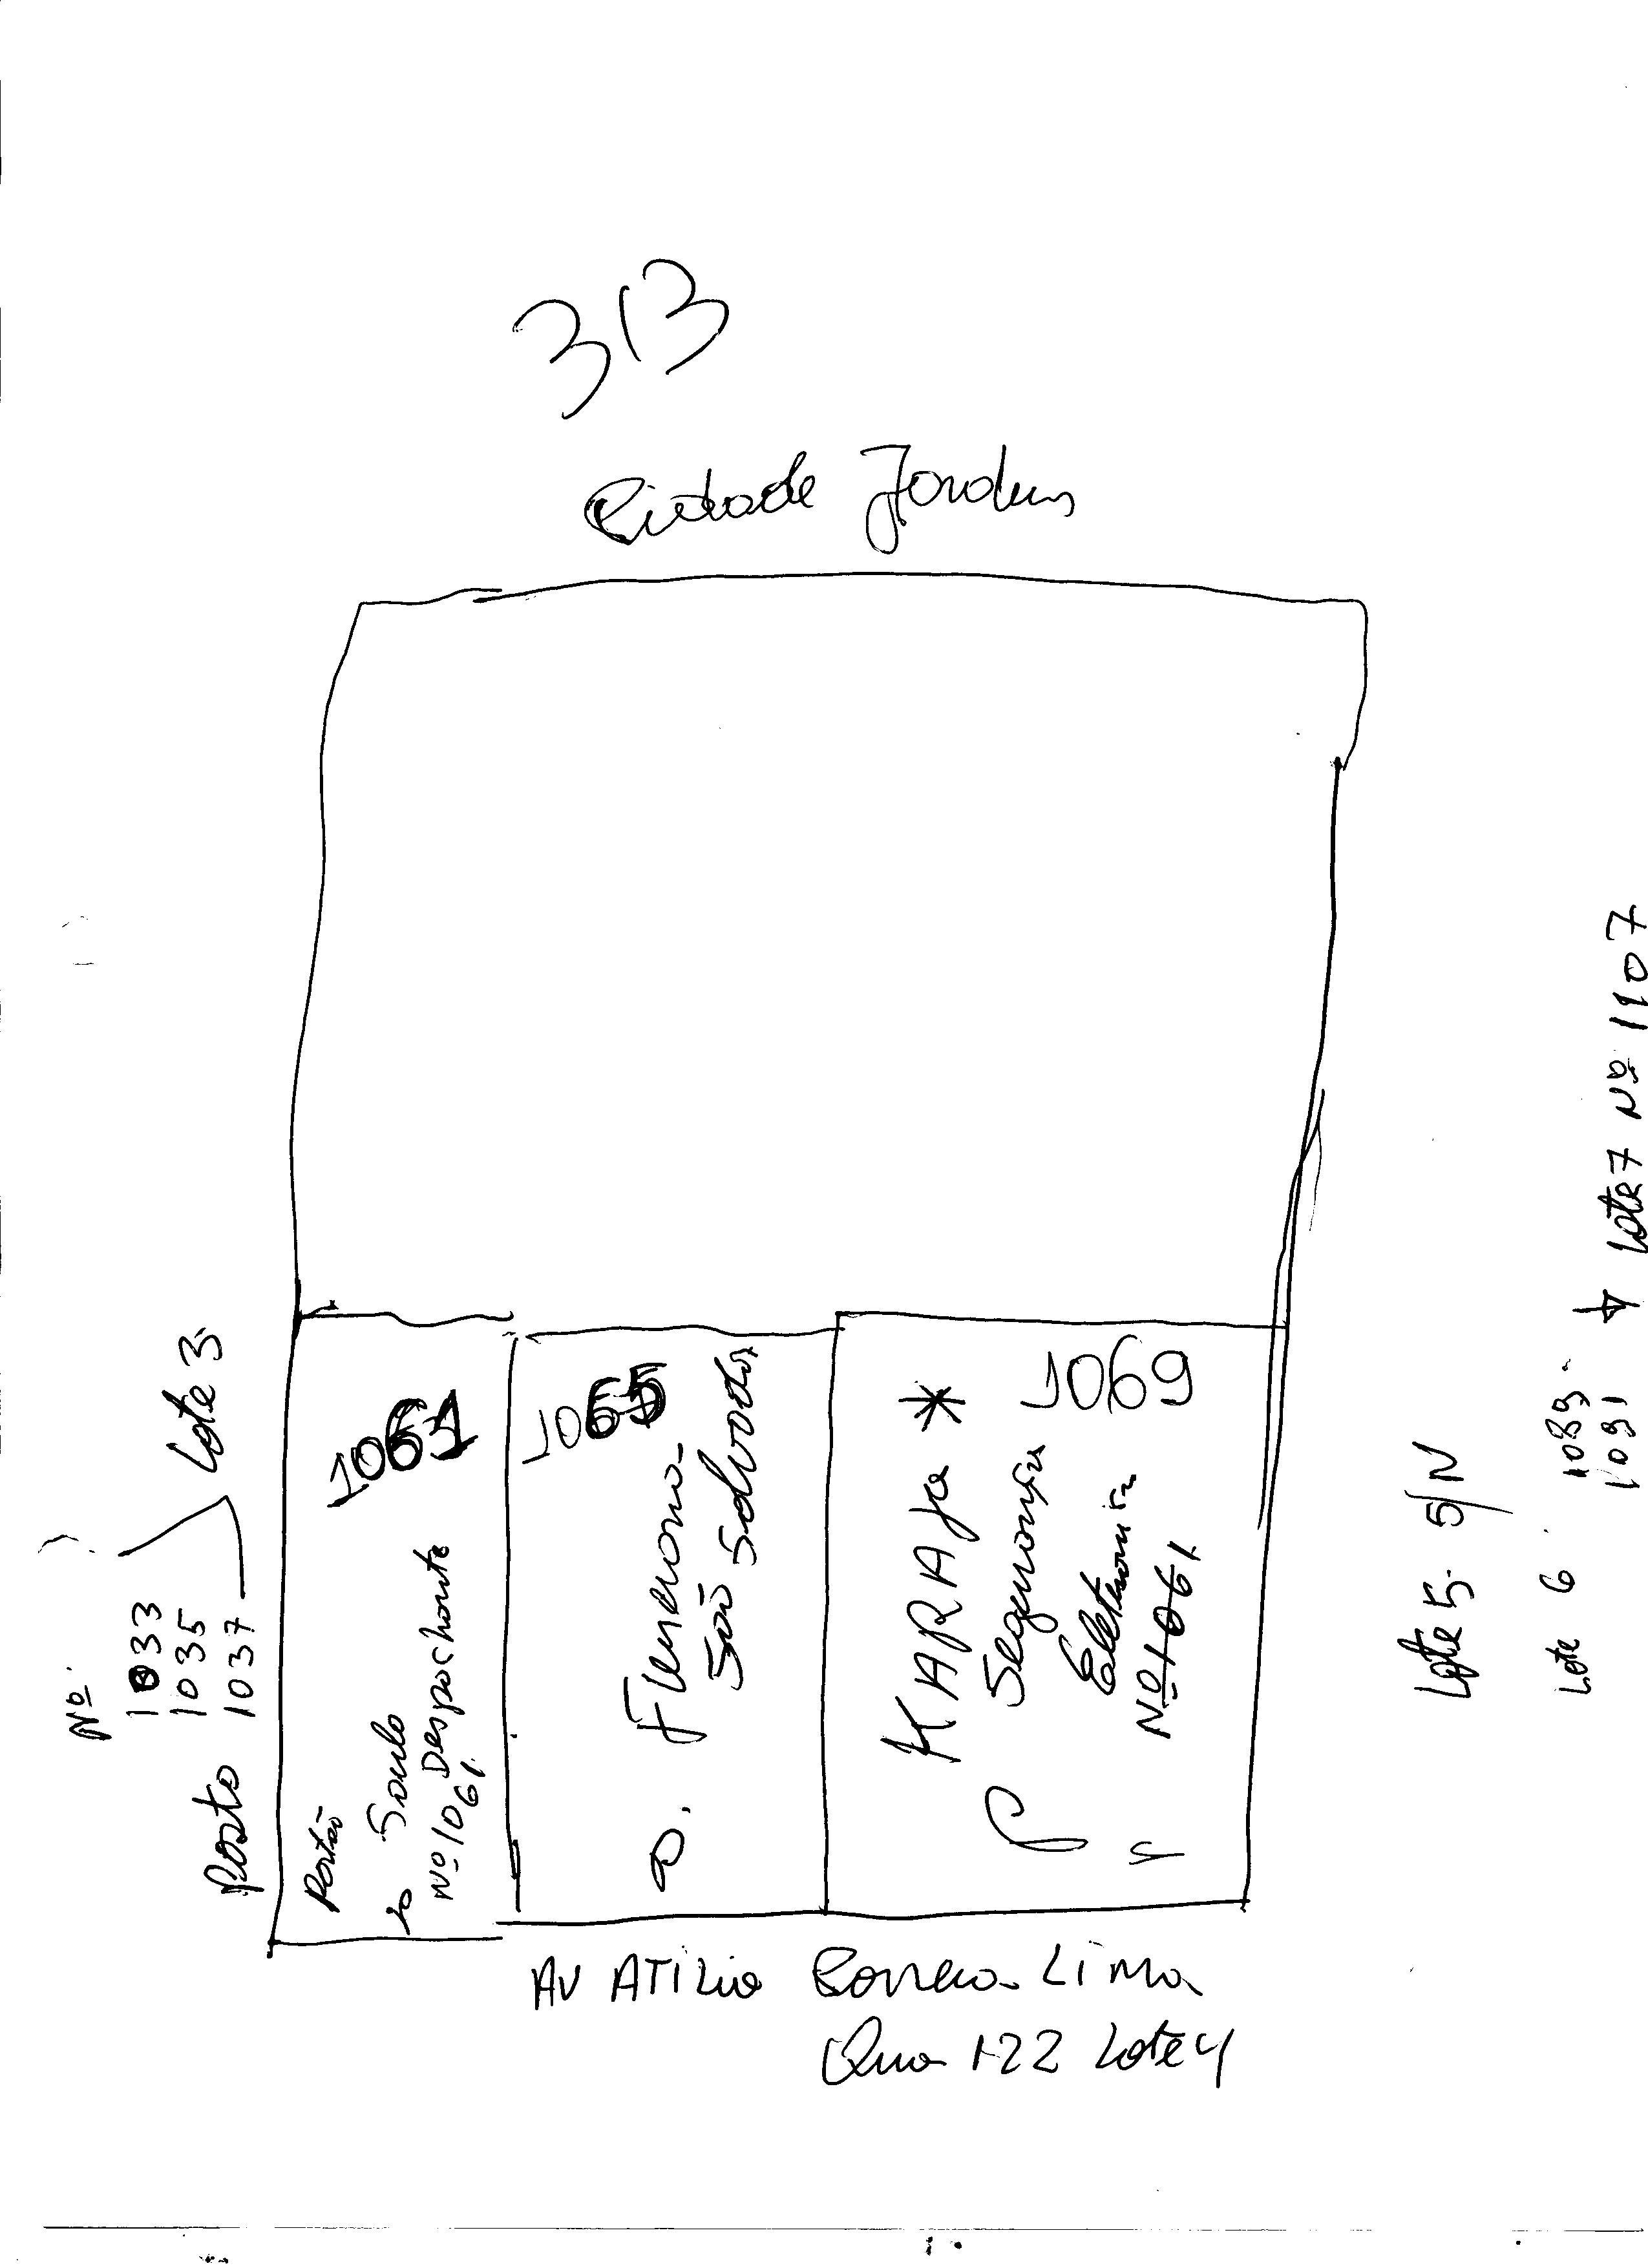 313
Cidade Jardim
Nº
1033
1035
1037
Lote 3
Posto
1061
Portão
Despachante
Nº 1061
1065
Funeraria
São Salvador
1069
KARAJA *
Segurança
Eletronica
Nº 1061
Lote 5. S/N
Lote 6
1089
1091
Lote 7 Nº 1107
AV ATILIO Correia Lima
Qua 122 Lote 4